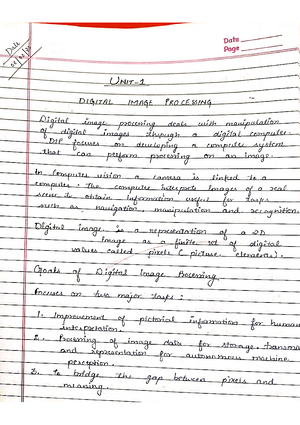 Date
Page
Date
UNIT-1
DIGITAL IMAGE PROCESSING
Digital image processing deals with manipulation
of digital images through a digital computer.
DIP focuses on developing a computer system
that can perform processing on an image.
In computer vision a camera is linked to a
computer. The computer interprets images of a real
scene to obtain information useful for tasks
such as navigation, manipulation and recognition.
Digital image is a representation of a 2D
image as a finite set of digital
values called pixels (picture elements).
Goals of Digital Image Processing.
Focuses on two major tasks:
1. Improvement of pictorial information for human
interpretation.
2. Processing of image data for storage, transmi
and representation for autonomous machine
perception.
3. To bridge the gap between pixels and
meaning.